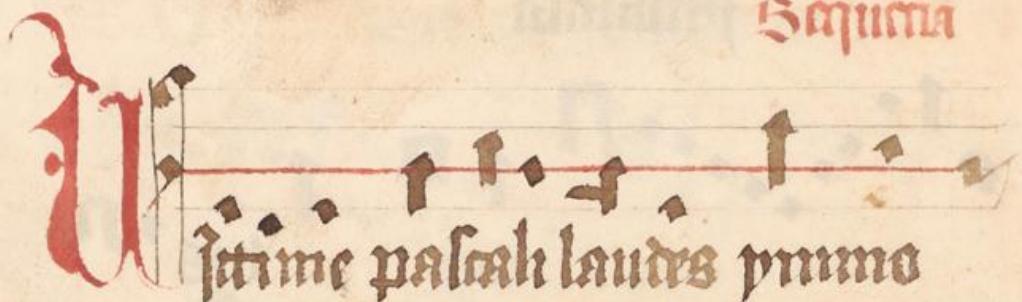 Sequencia
Uictime pascali laudes ymmno